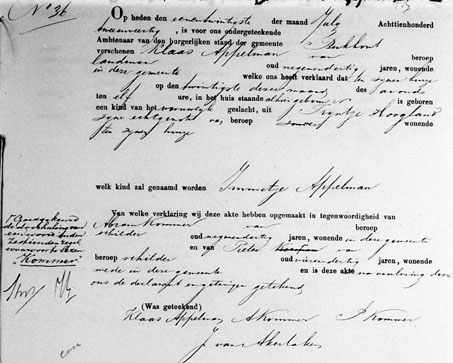 No 36
Op heden den eenentwintigste der maand July Achttienhonderd
tweeenveertig, is voor ons ondergeteekende
Ambtenaar van den burgerlijken stand der gemeente Berkhout
verschenen Klaas Appelman van beroep
landman oud negenendertig jaren, wonende
in deze gemeente welke ons heeft verklaard dat te zynen huize
op den twintigste dezer maand des avonds
ten elf ure, in het huis staande alhier is geboren
een kind van het vrouwelijk geslacht, uit Tryntje Hoogland
zyne echtgenote van beroep wonende
ten zynen huize
welk kind zal genaamd worden Immetje Appelman
Van welke verklaring wij deze akte hebben opgemaakt in tegenwoordigheid van
Abram Kommer van beroep
schilder oud negenendertig jaren, wonende in deze gemeente
en van Pieter van
beroep schilder oud vierendertig jaren, wonende
mede in deze gemeente en is deze akte na voorlezing door
ons de declarant en getuigen getekend
(Was geteekend)
Klaas Appelman A Kommer P Kommer
J van Akerlaken
Goedgekeurd
de doorhaling van
een woord
zestienden regel
waarvoor te lezen
"Kommer"